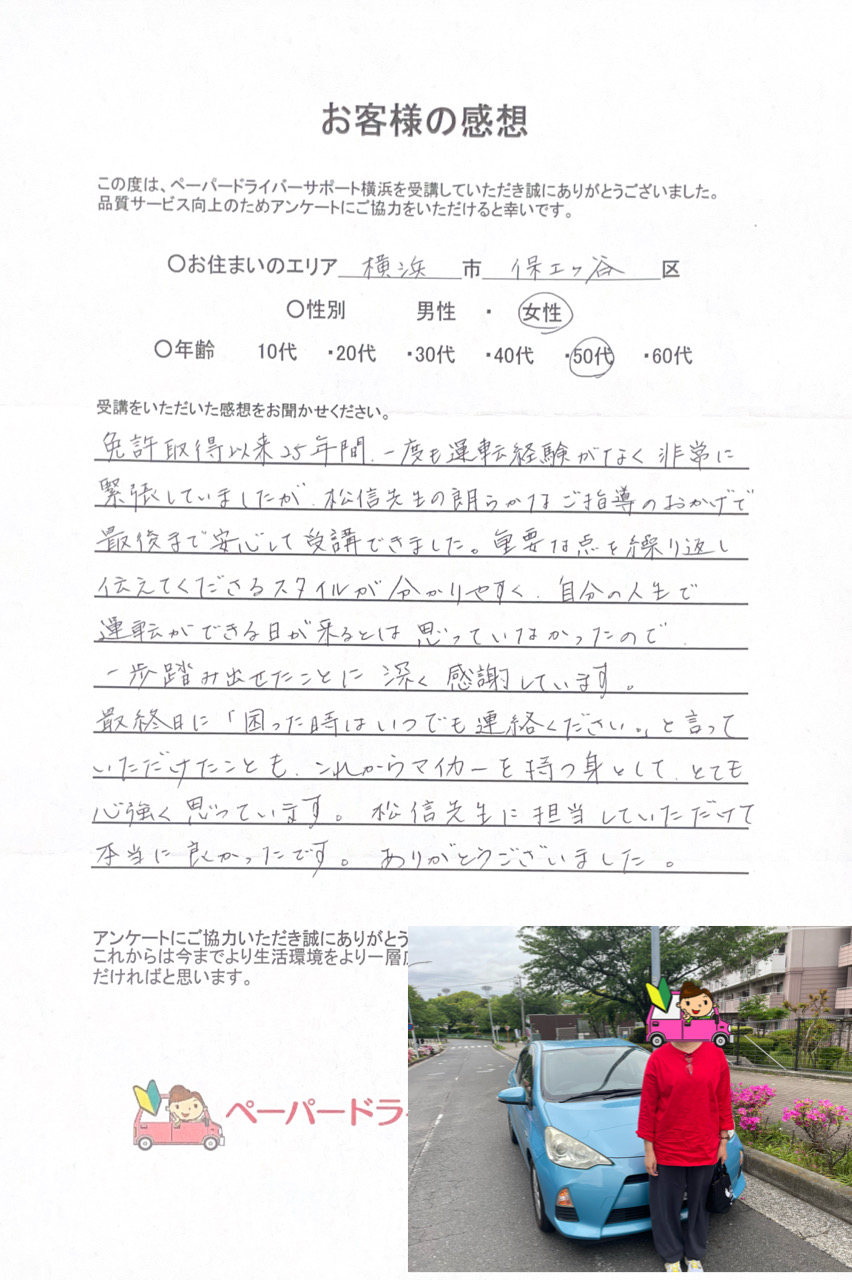 お客様の感想
この度は、ペーパードライバーサポート横浜を受講していただき誠にありがとうございました。
品質サービス向上のためアンケートにご協力をいただけると幸いです。
〇お住まいのエリア 横浜 市 保土ヶ谷 区
〇性別 男性 ・ 女性
〇年齢 10代 ・20代 ・30代 ・40代 ・50代 ・60代
受講をいただいた感想をお聞かせください。
免許取得以来25年間、一度も運転経験がなく非常に
緊張していましたが、松信先生の朗らかなご指導のおかげで
最後まで安心して受講できました。重要な点を繰り返し
伝えてくださるスタイルが分かりやすく、自分の人生で
運転ができる日が来るとは思っていなかったので、
一歩踏み出せたことに深く感謝しています。
最終日に「困った時はいつでも連絡ください。」と言って
いただけたことも、これからマイカーを持つ身として、とても
心強く思っています。松信先生に担当していただけて
本当に良かったです。ありがとうございました。
アンケートにご協力いただき誠にありがとう
これからは今までより生活環境をより一層
だければと思います。
ペーパードラ